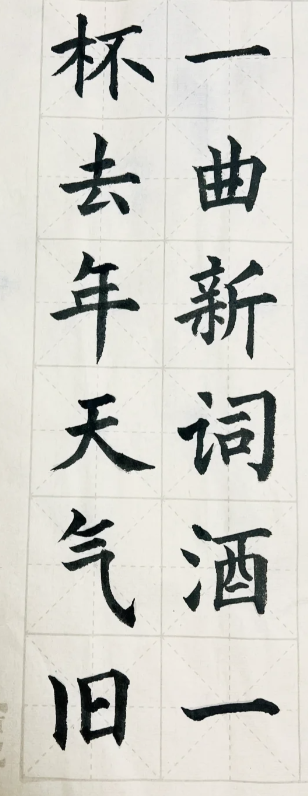 一曲新词酒一
杯去年天气旧